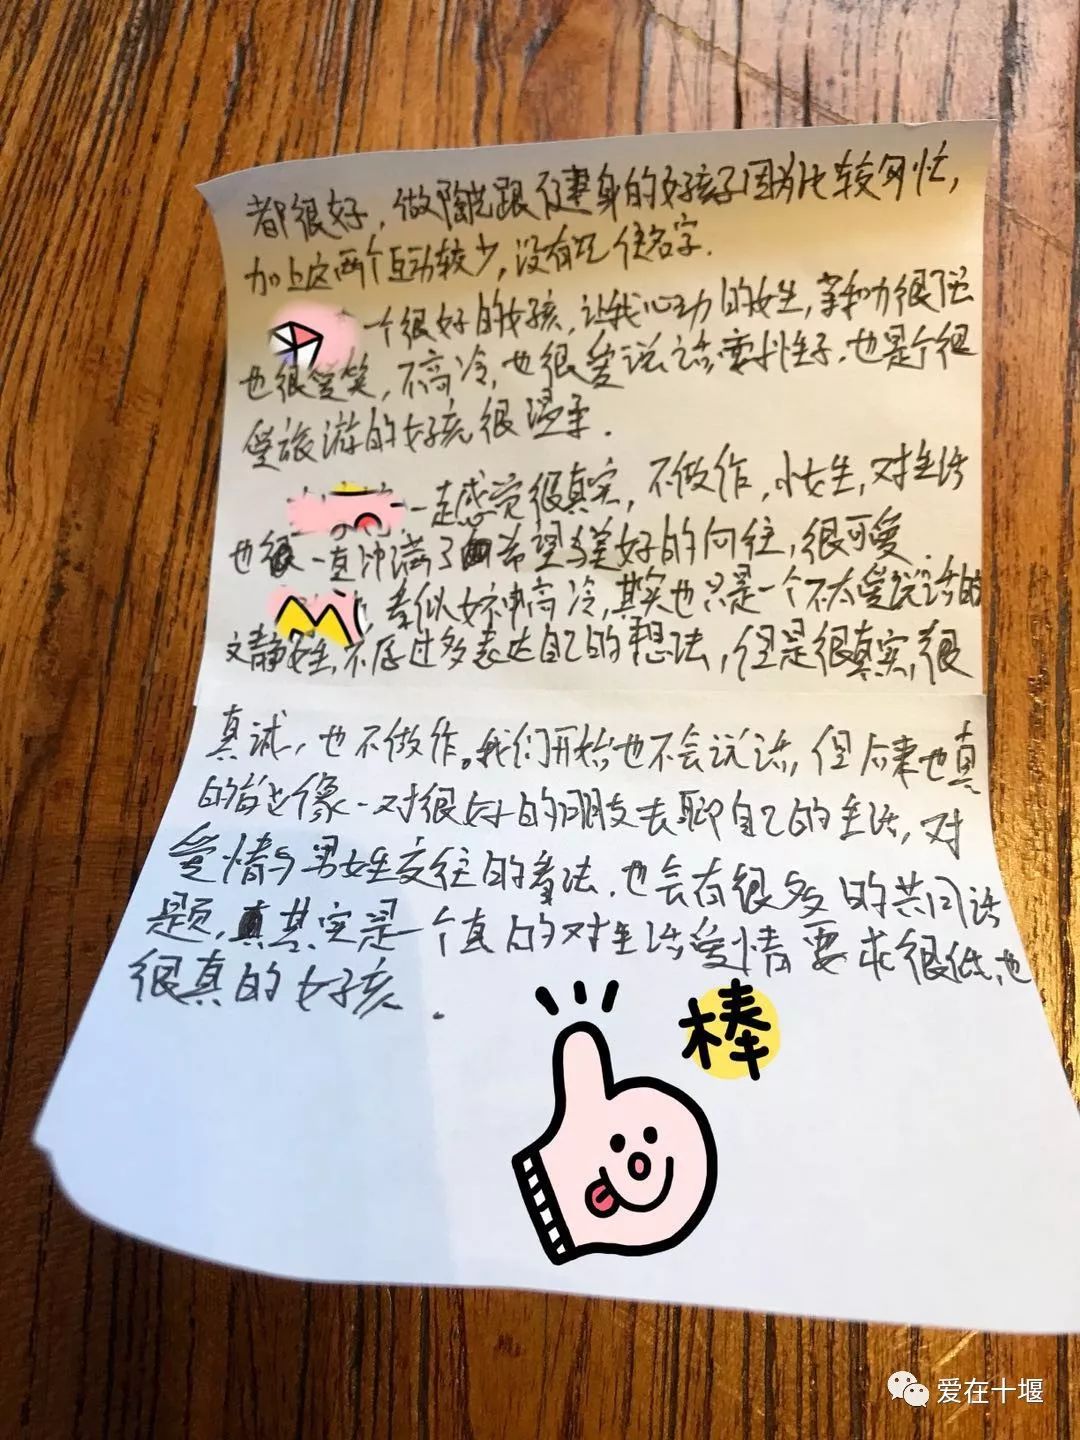 都很好，做陶艺跟健身的女孩子因为比较匆忙，
加上这两个互动较少，没有记住名字．
一个很好的女孩，让我心动的女生，亲和力很强
也很爱笑，不高冷，也很爱说话，耍性子．也是个很
爱旅游的女孩，很温柔．
一起感觉很真实，不做作，小女生，对生活
也很一直冲满了希望与美好的向往，很可爱．
看似女神高冷，其实也只是一个不太爱说话的
文静女生，不愿过多表达自己的想法，但是很真实，很
真诚，也不做作。我们开始也不会说话，但后来也真
的前边像一对很好的朋友去聊自己的生活，对
爱情与男女生交往的看法．也会有很多的共同话
题，其实是一个真的对生活爱情要求很低，也
很真的女孩．
棒
爱在十堰